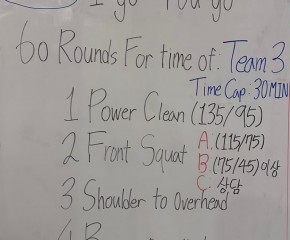 I go You go
60 Rounds For time of: Team 3
Time Cap: 30 MIN
1 Power Clean (135/95)
2 Front Squat A. (115/75)
B. (75/45)이상
C. 상담
3 Shoulder to Overhead
4 B